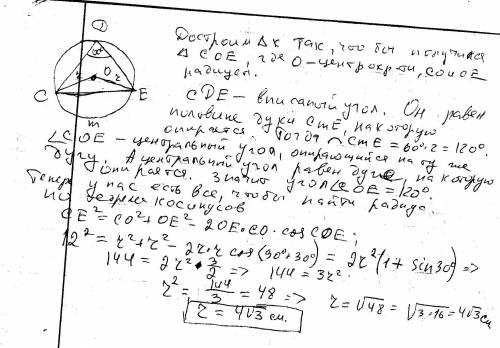 D
60°
O
r
r
C
E
m
Достроим Δк так, что бы получился
Δ COE, где O - центр окр-ти, CO и OE
радиусы.
CDE - вписаный угол. Он равен
половине дуги CmE, на которую
опирается. Тогда ◠CmE = 60°·2 = 120°.
∠COE - центральный угол, опирающийся на ту же
дугу. А центральный угол равен дуге, на которую
он опирается. Значит угол ∠COE = 120°
Теперь у нас есть все, чтобы найти радиус.
По теореме косинусов
CE² = CO² + OE² - 2OE·CO·cos COE;
12² = r² + r² - 2r·r cos(90°+30°) = 2r²(1 + sin30°) =>
144 = 2r² · 3/2 => 144 = 3r²
r² = 144/3 = 48 => r = √48 = √3·16 = 4√3 см
r = 4√3 см.